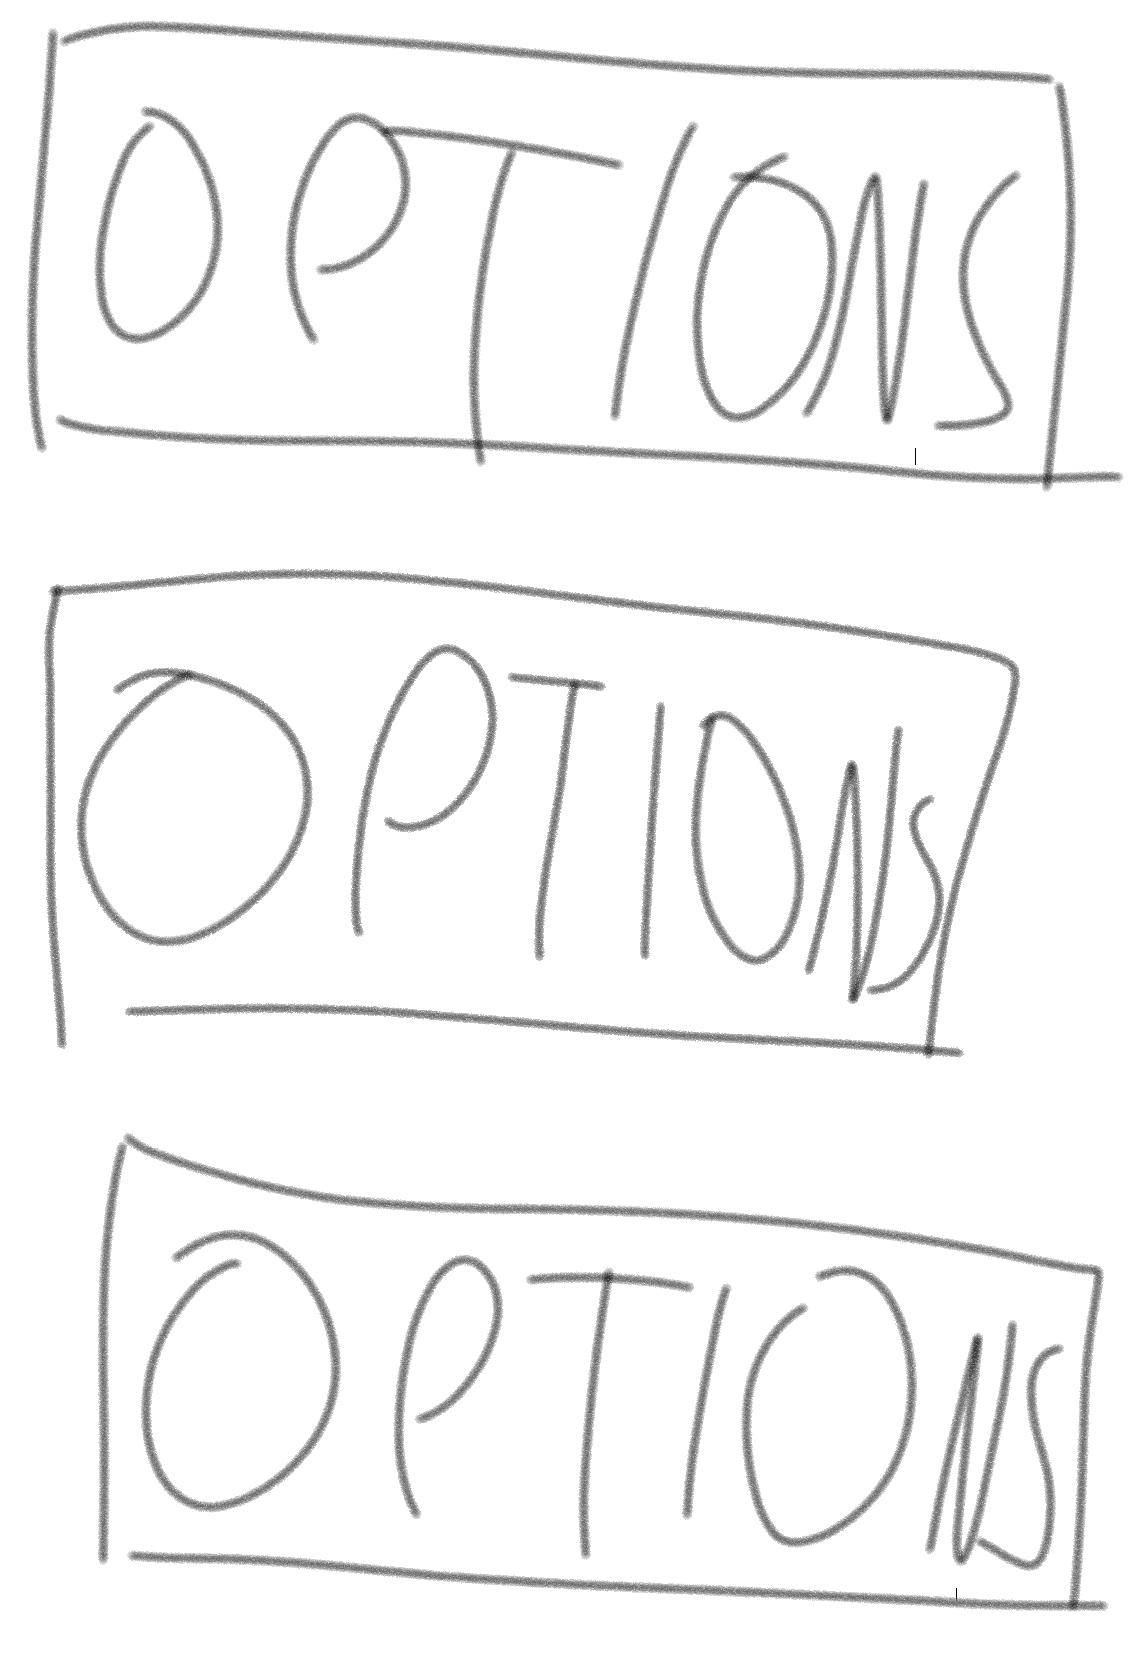 OPTIONS
OPTIONS
OPTIONS